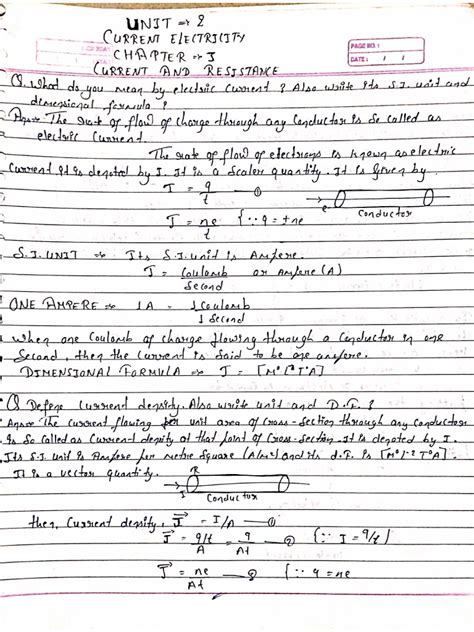 UNIT ⇒ 2
CURRENT ELECTRICITY
CHAPTER ⇒ 3
CURRENT AND RESISTANCE
PAGE NO:
DATE: / /
Q. What do you mean by electric current ? Also write its S.I. unit and
dimensional formula ?
Answer The rate of flow of charge through any Conductor is So called as
electric Current.
The rate of flow of electrons is known as electric
Current it is denoted by I. It is a Scaler quantity. It is given by
I = q/t —①
I = ne/t {∵ q = ±ne
e⁻ Conductor
S.I. UNIT ⇒ Its S.I. unit is Ampere.
I = Coulomb/Second or Ampere (A)
ONE AMPERE ⇒ 1A = 1 Coulomb/1 Second
When one Coulomb of charge flowing through a Conductor in one
Second, then the current is Said to be one ampere.
DIMENSIONAL FORMULA ⇒ I = [M⁰L⁰T⁰A]
Q Define Current density. Also write unit and D.F. ?
Answer The current flowing per unit area of Cross-section through any Conductor
is So called as Current density at that point of Cross-section. It is denoted by J.
Its S.I. unit is Ampere per metre Square (A/m²) and its d.f. is [M⁰L⁻²T⁰A].
It is a vector quantity.
I Conductor
then, Current density, J⃗ = I/A —①
J⃗ = q/t/A = q/At —② {∵ I = q/t}
J⃗ = ne/At —③ {∵ q = ne